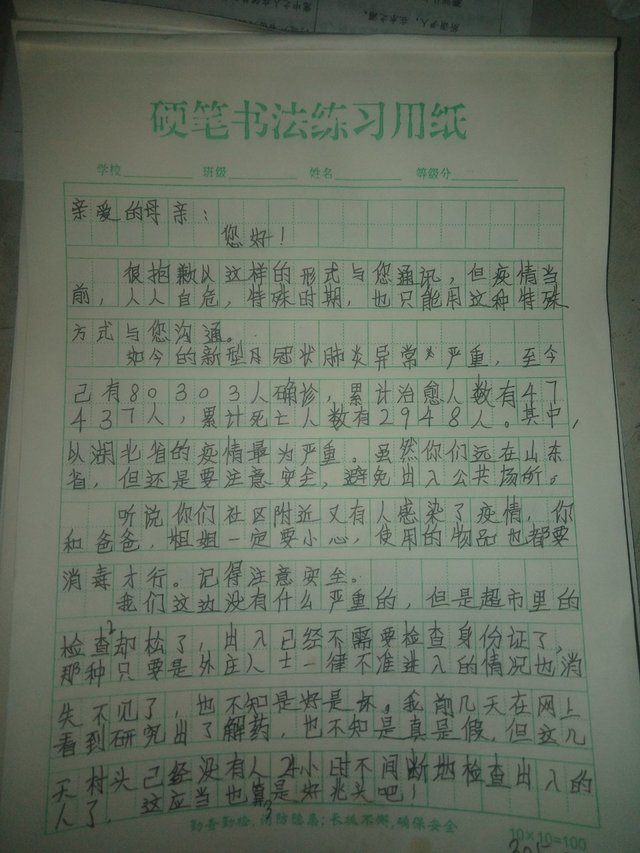 硬笔书法练习用纸
学校 班级 姓名 等级分
亲爱的母亲：
您好！
很抱歉以这样的形式与您通讯，但疫情当
前，人人自危，特殊时期，也只能用这种特殊
方式与您沟通。
如今的新型冠状肺炎异常严重，至今
已有80303人确诊，累计治愈人数有47
437人，累计死亡人数有2948人。其中，
以湖北省的疫情最为严重。虽然你们远在山东
省，但还是要注意安全，避免出入公共场所。
听说你们社区附近又有人感染了疫情，你
和爸爸，姐姐一定要小心，使用的物品也都要
消毒才行。记得注意安全。
我们这边没有什么严重的，但是超市里的
检查却松了，出入已经不需要检查身份证了，
那种只要是外庄人士一律不准进入的情况也消
失不见了，也不知是好是坏。我前几天在网上
看到研究出了解药，也不知是真是假，但这几
天村头已经没有人24小时不间断地检查出入的
人了，这应当也算是好兆头吧！
勤查勤检，消防隐患；长抓不懈，确保安全
10×10=100